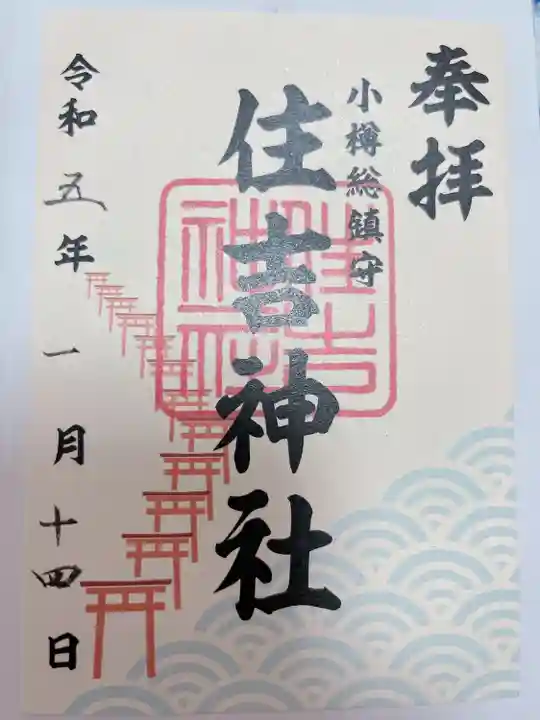 奉拝
小樽総鎮守
住吉神社
住吉神社
令和五年一月十四日